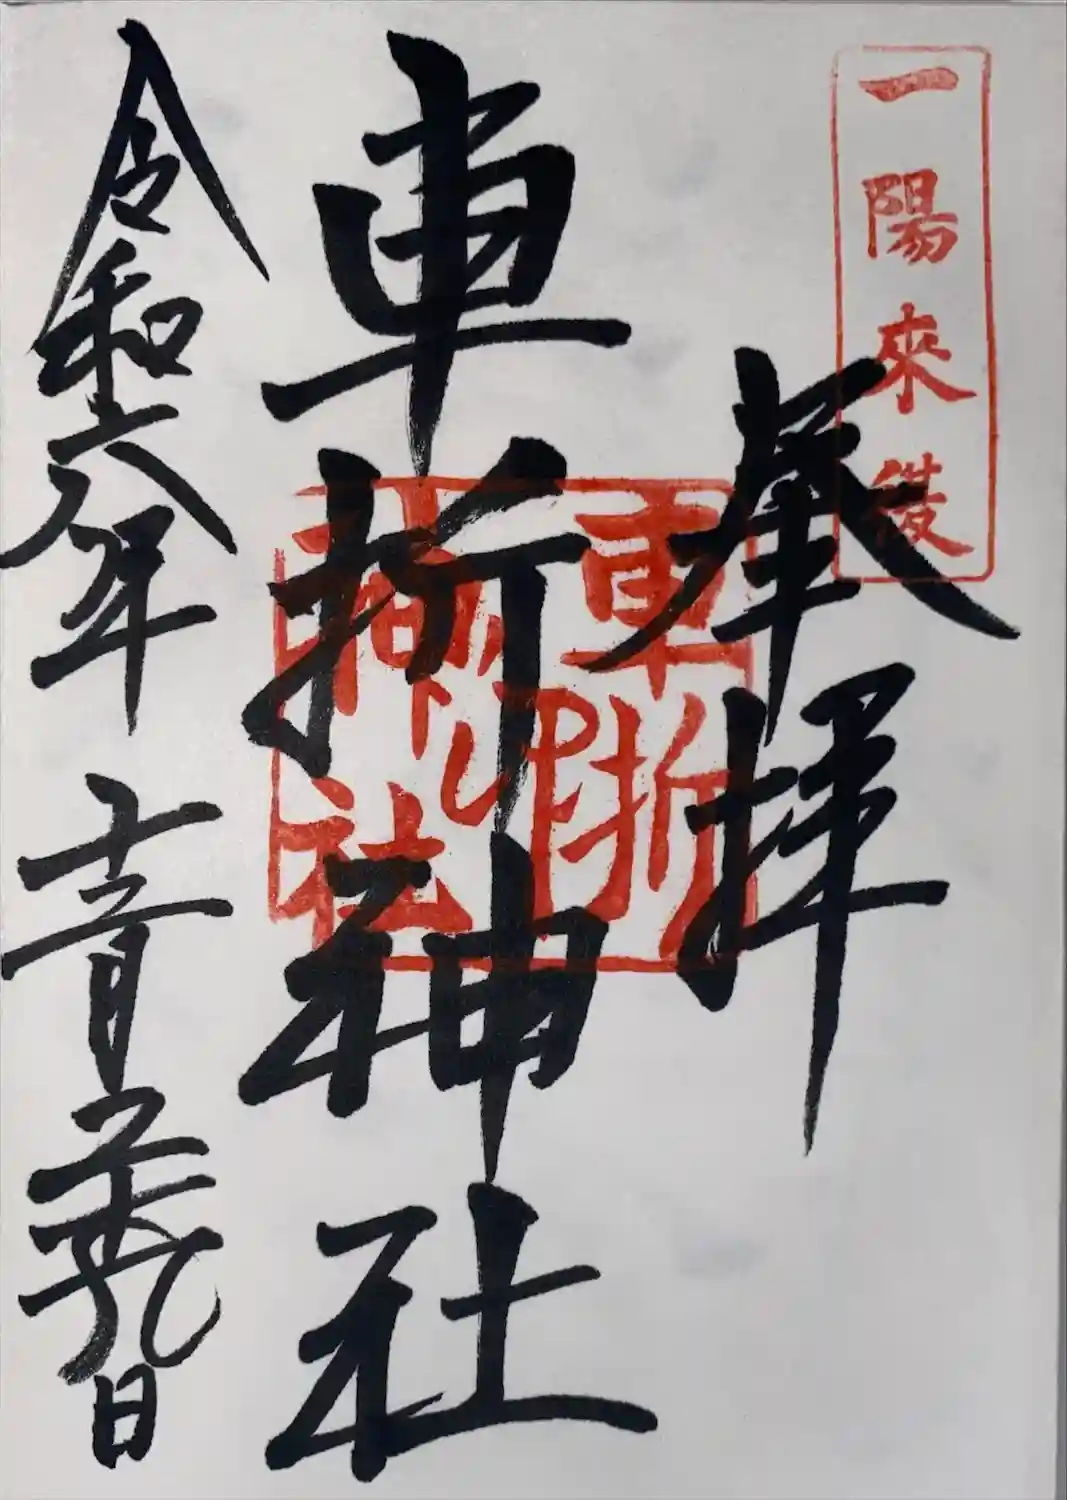 一陽來復
奉拝
車折
神社
印
車折神社
令和六年 十二月 日